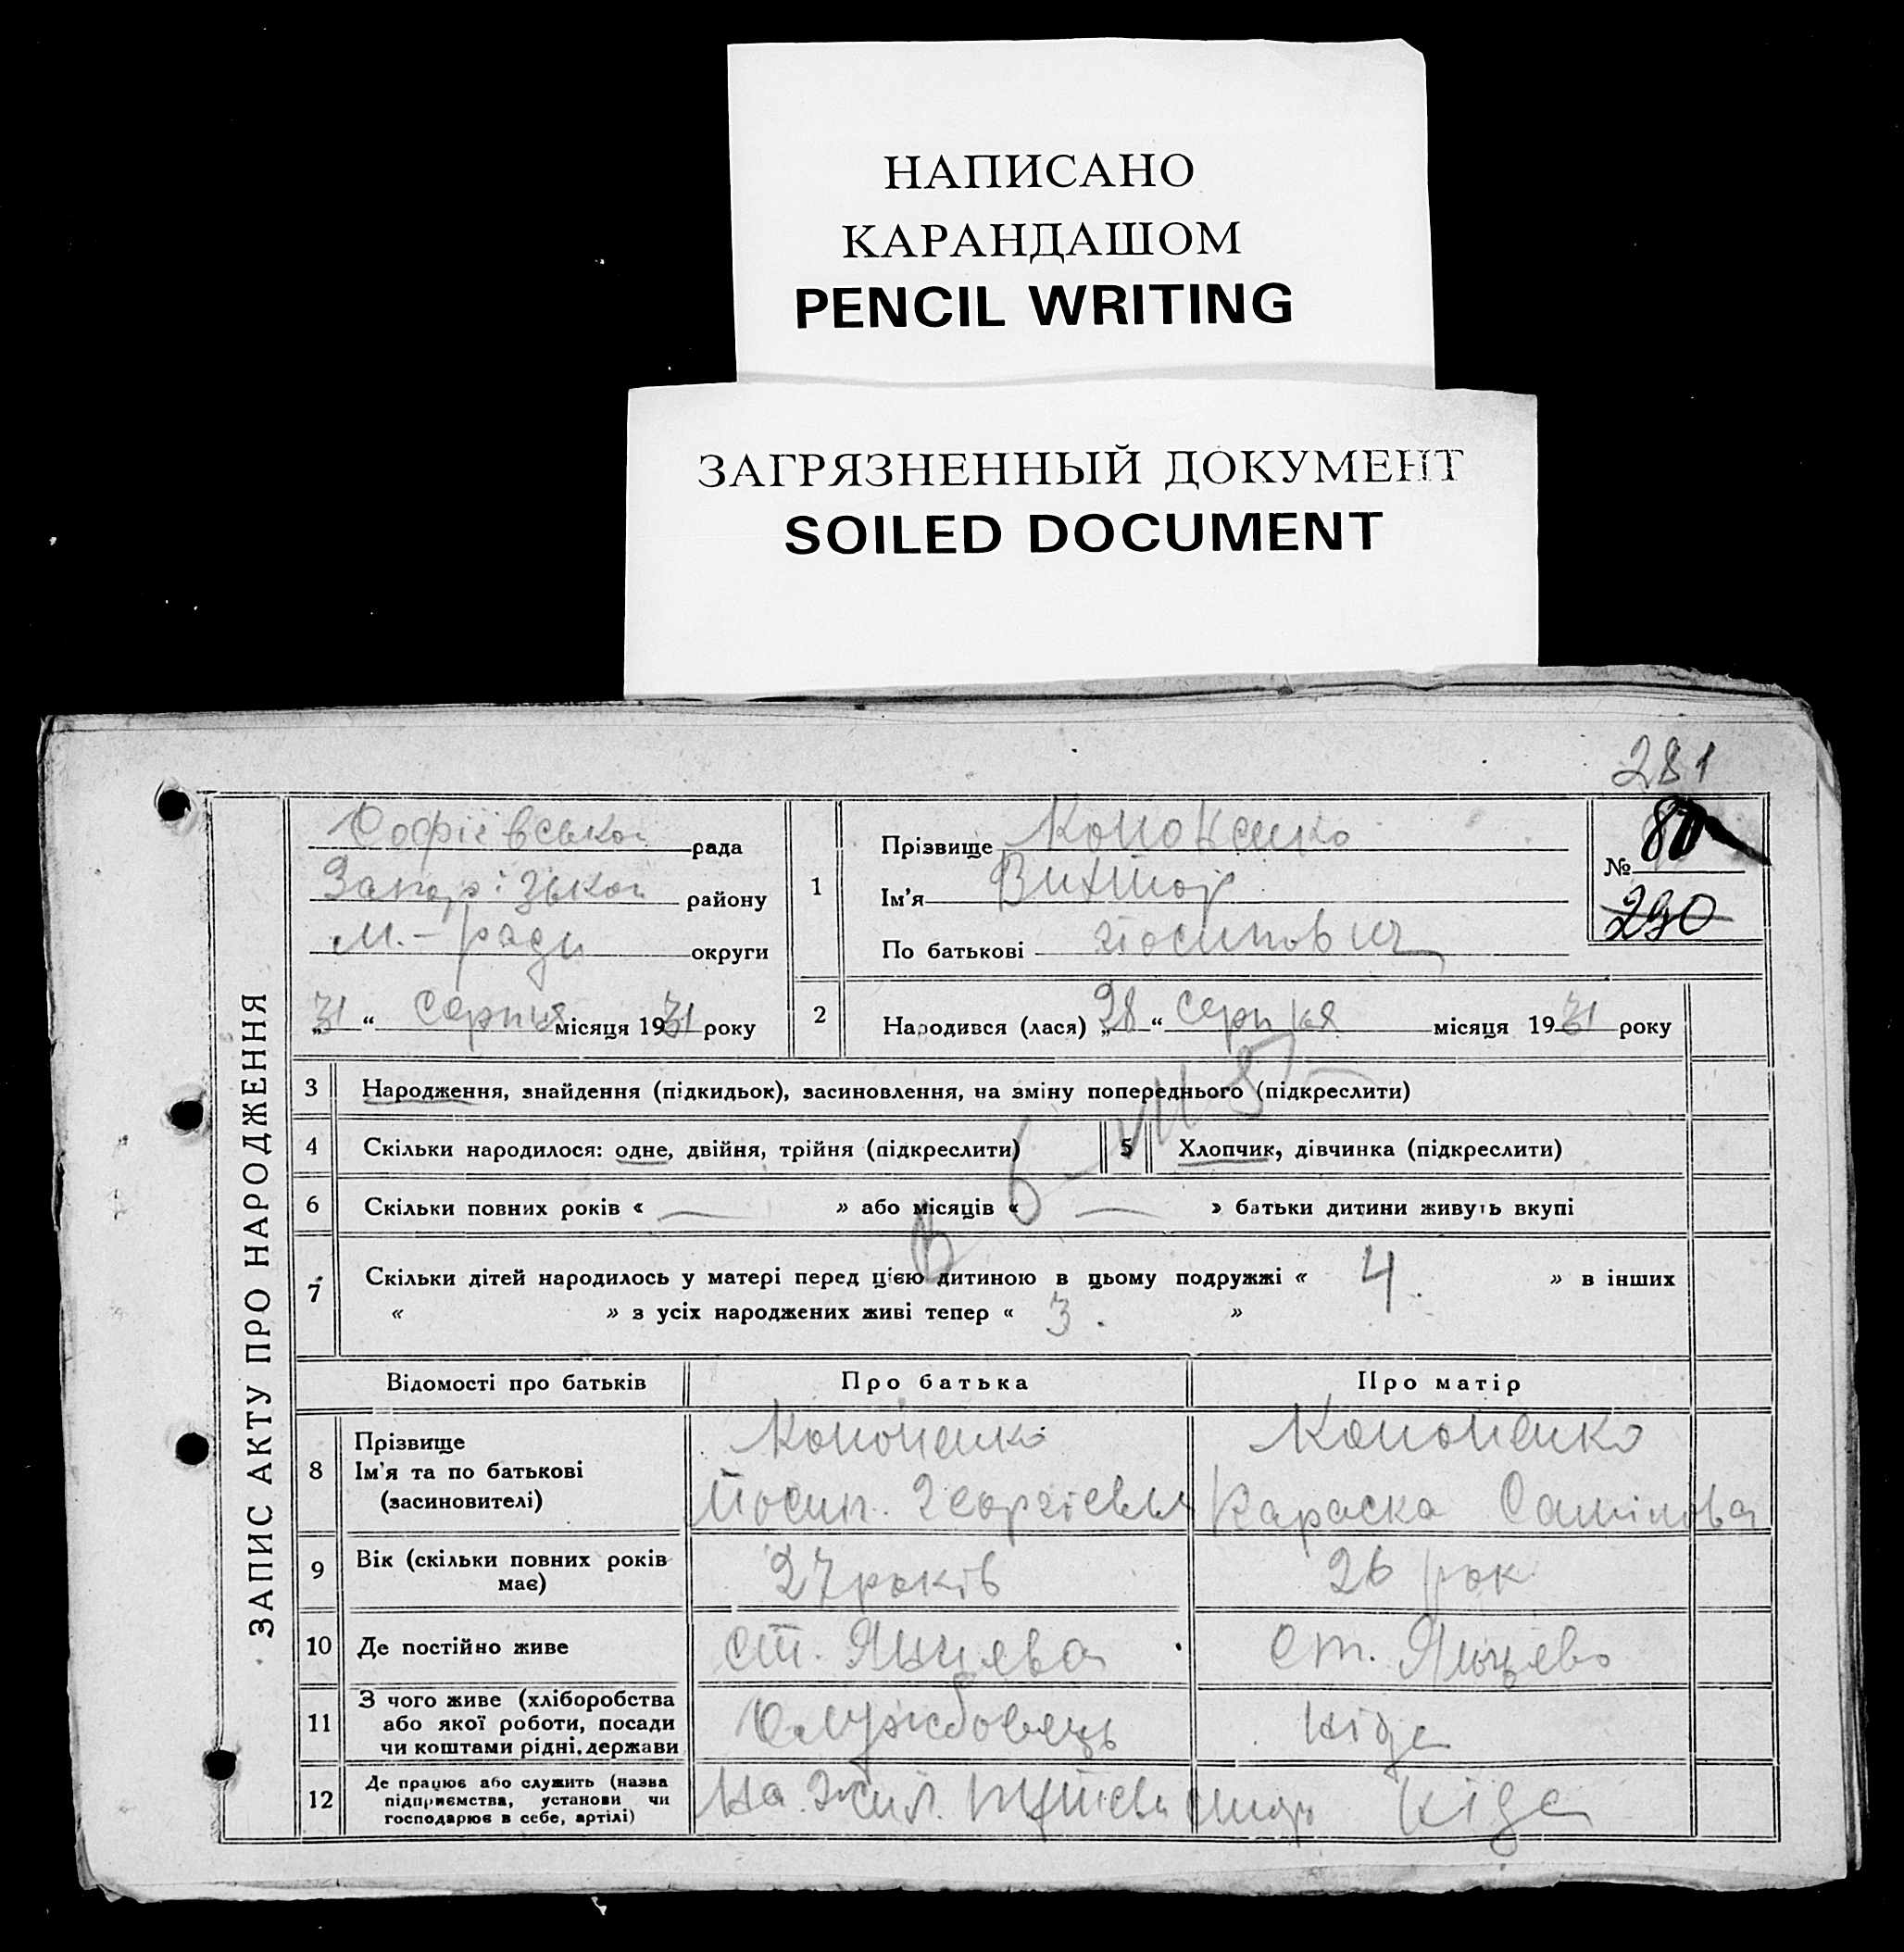 НАПИСАНО
КАРАНДАШОМ
PENCIL WRITING
ЗАГРЯЗНЕННЫЙ ДОКУМЕНТ
SOILED DOCUMENT
281
ЗАПИС АКТУ ПРО НАРОДЖЕННЯ
Софієвської рада
Запорізької району
м.-ради округи
„31“ Серпня місяця 1931 року
1
Прізвище Кононенко
Ім'я Виктор
По батькові Йосипович
№ 80
290
2
Народився (лася) „28“ Серпня місяця 1931 року
3 Народження, знайдення (підкидьок), засиновлення, на зміну попереднього (підкреслити)
4 Скільки народилося: одне, двійня, трійня (підкреслити)
5 Хлопчик, дівчинка (підкреслити)
6 Скільки повних років « — » або місяців « — » батьки дитини живуть вкупі
7 Скільки дітей народилось у матері перед цією дитиною в цьому подружжі « 4 » в інших
« » з усіх народжених живі тепер « 3. »
Відомості про батьків Про батька Про матір
8 Прізвище
Ім'я та по батькові
(засиновителі)
Кононенко
Йосип Георгієвич
Кононенко
9 Вік (скільки повних років
має)
27 років
26 рок
10 Де постійно живе
ст. Янцева
ст. Янцево
11 З чого живе (хліборобства
або якої роботи, посади
чи коштами рідні, держави
Службовець
Ніде
12 Де працює або служить (назва
підприємства, установи чи
господарює в себе, артілі)
На
Ніде